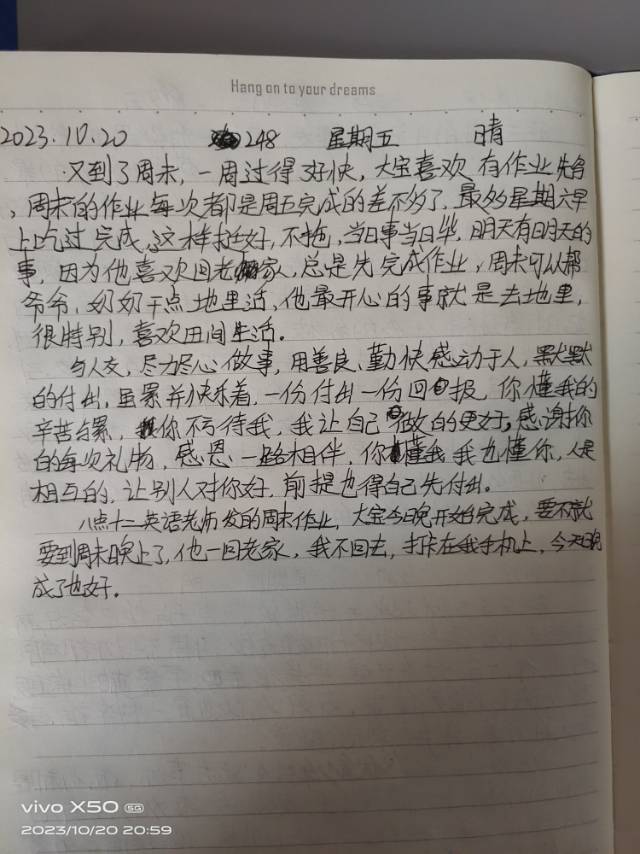 Hang on to your dreams
2023.10.20 248 星期五 晴
又到了周末,一周过得好快,大宝喜欢有作业先写
,周末的作业每次都是周五完成的差不多了,最多星期六早
上吃过完成,这样挺好,不拖,当日事当日毕,明天有明天的
事,因为他喜欢回老家,总是先完成作业,周末可以帮
爷爷,奶奶干点地里活,他最开心的事就是去地里,
很特别,喜欢田间生活。
与人交,尽力尽心做事,用善良、勤快感动于人,默默
的付出,虽累并快乐着,一份付出一份回报,你懂我的
辛苦与累,你不亏待我,我让自己做的更好,感谢你
的每次礼物,感恩一路相伴,你懂我我也懂你,人是
相互的,让别人对你好,前提也得自己先付出。
八点十二英语老师发的周末作业,大宝今晚开始完成,要不就
要到周末晚上了,他一回老家,我不回去,打卡在我手机上,今天
成了也好。
vivo X50 5G
2023/10/20 20:59